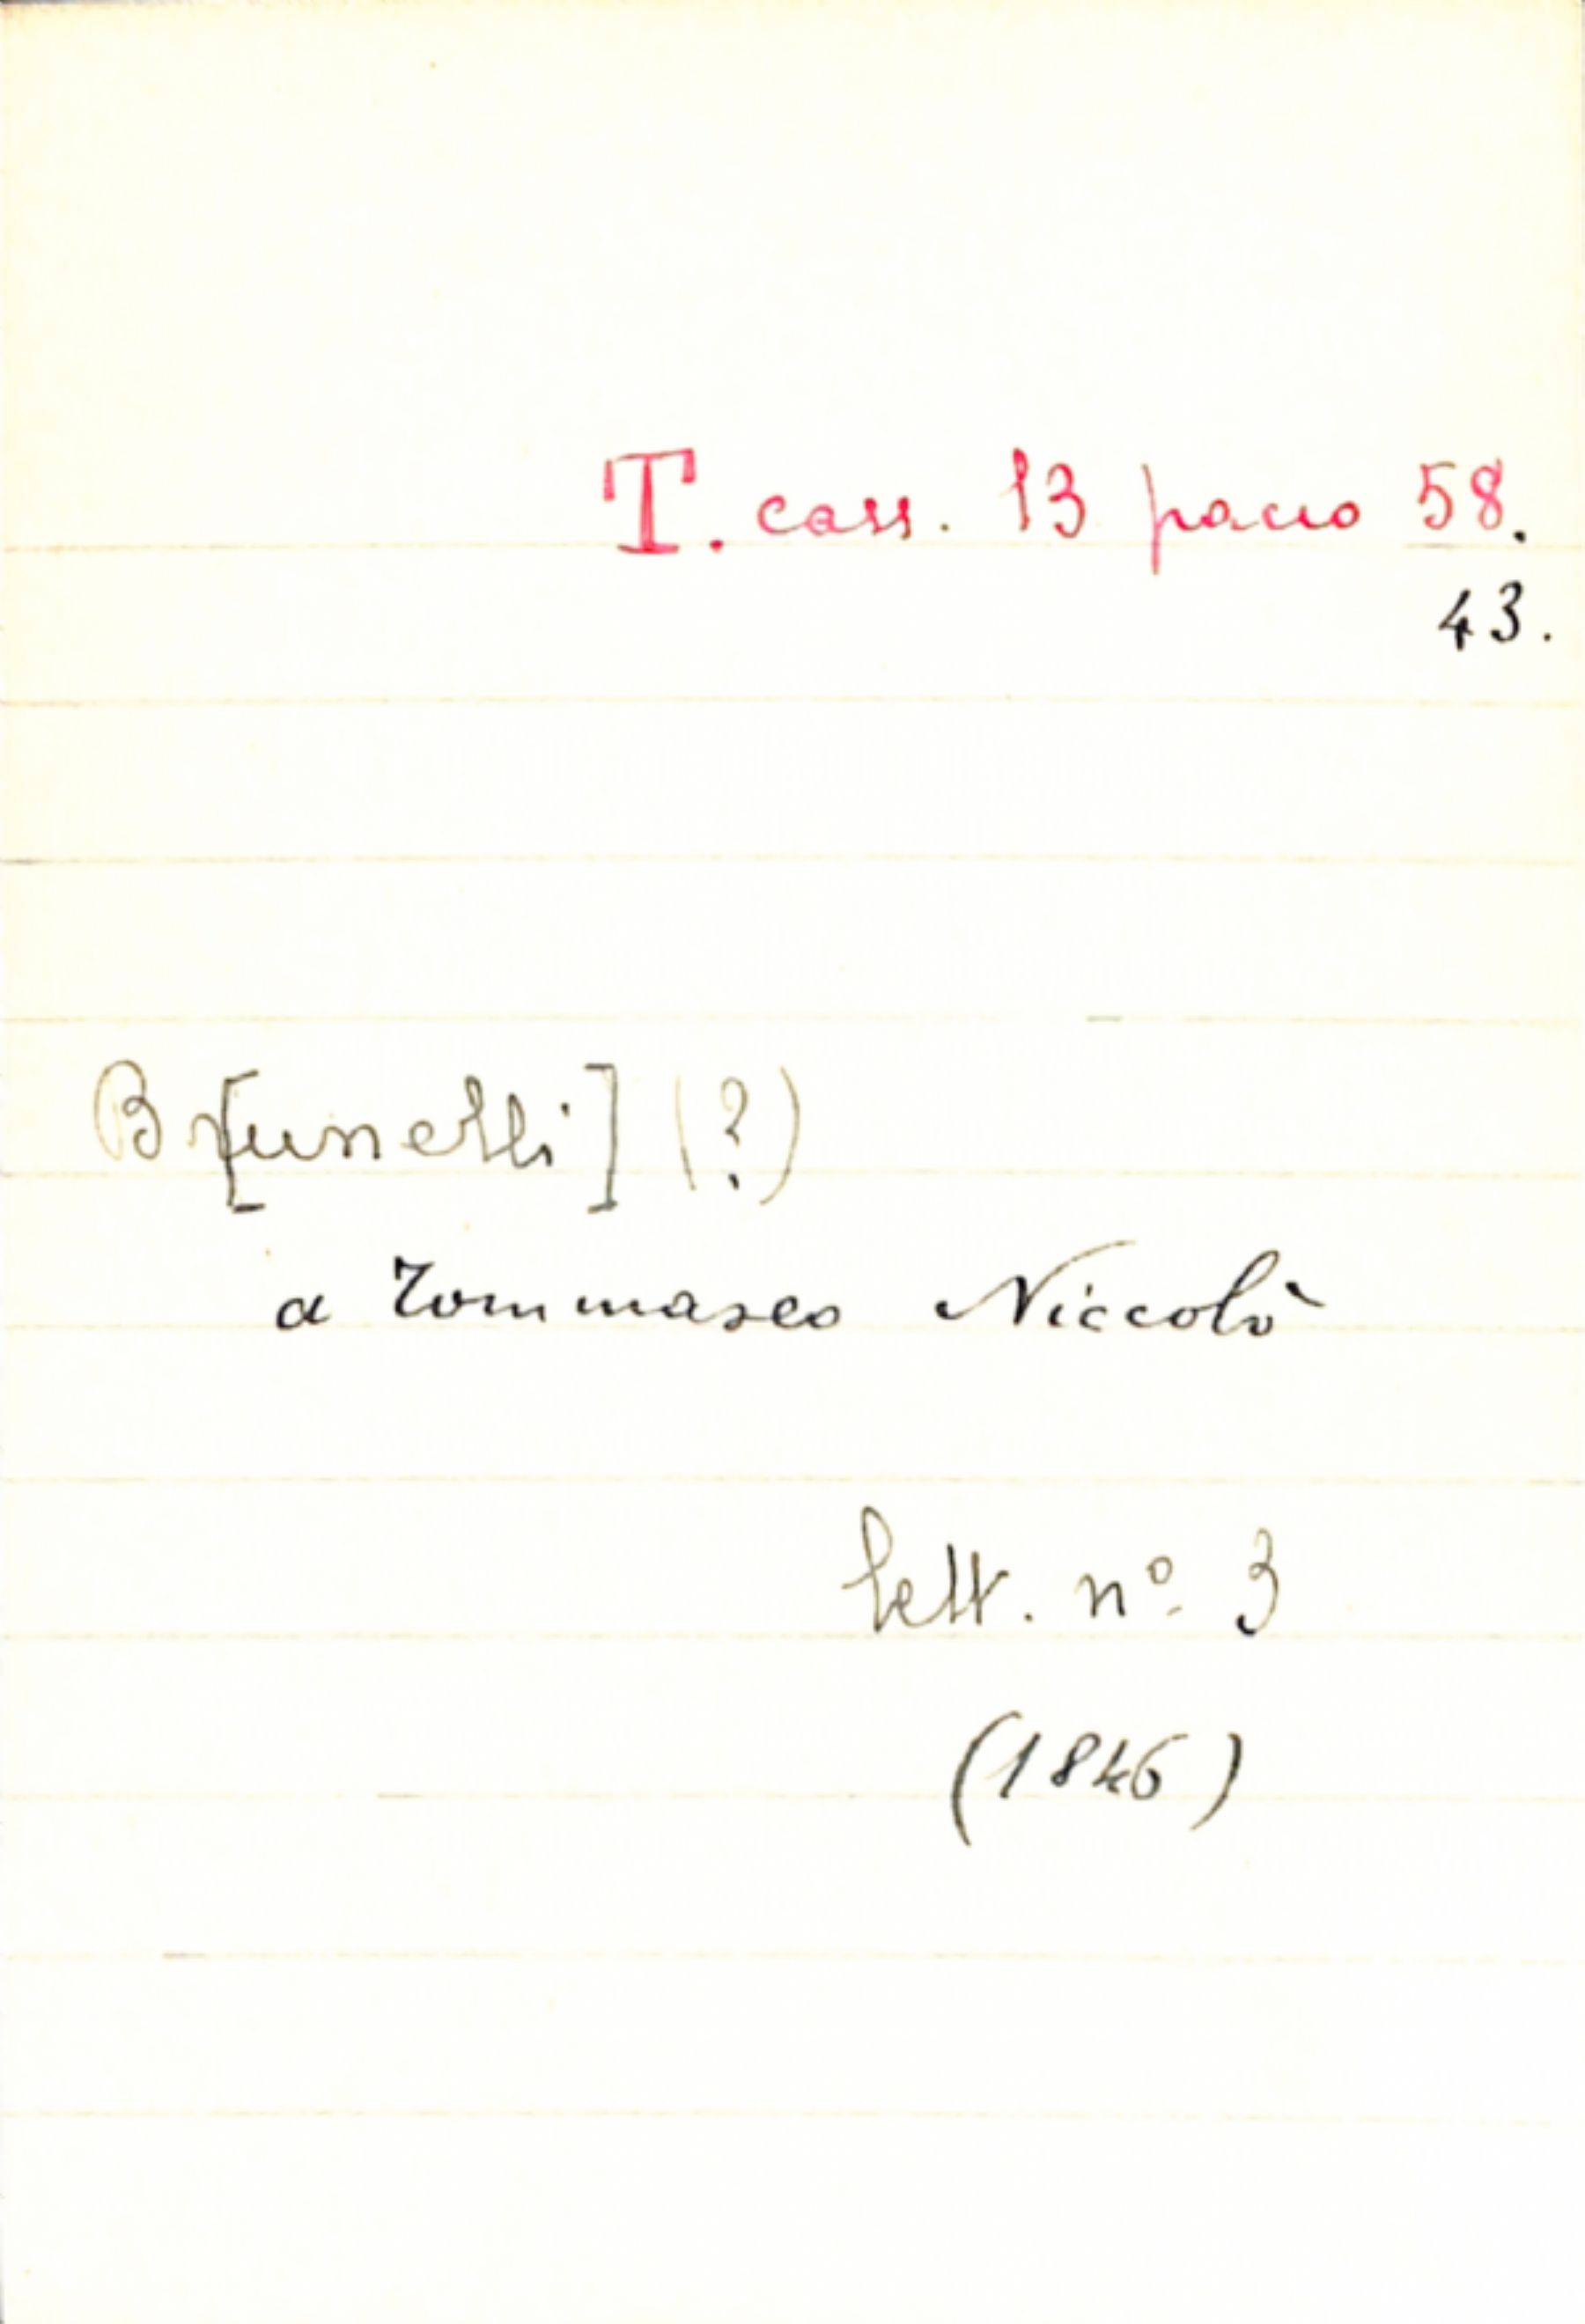 T. cass. 13 pacco 58.
43.
Br[unelli] (?)
a Tommaseo Niccolò
lett. nº 3
(1846)